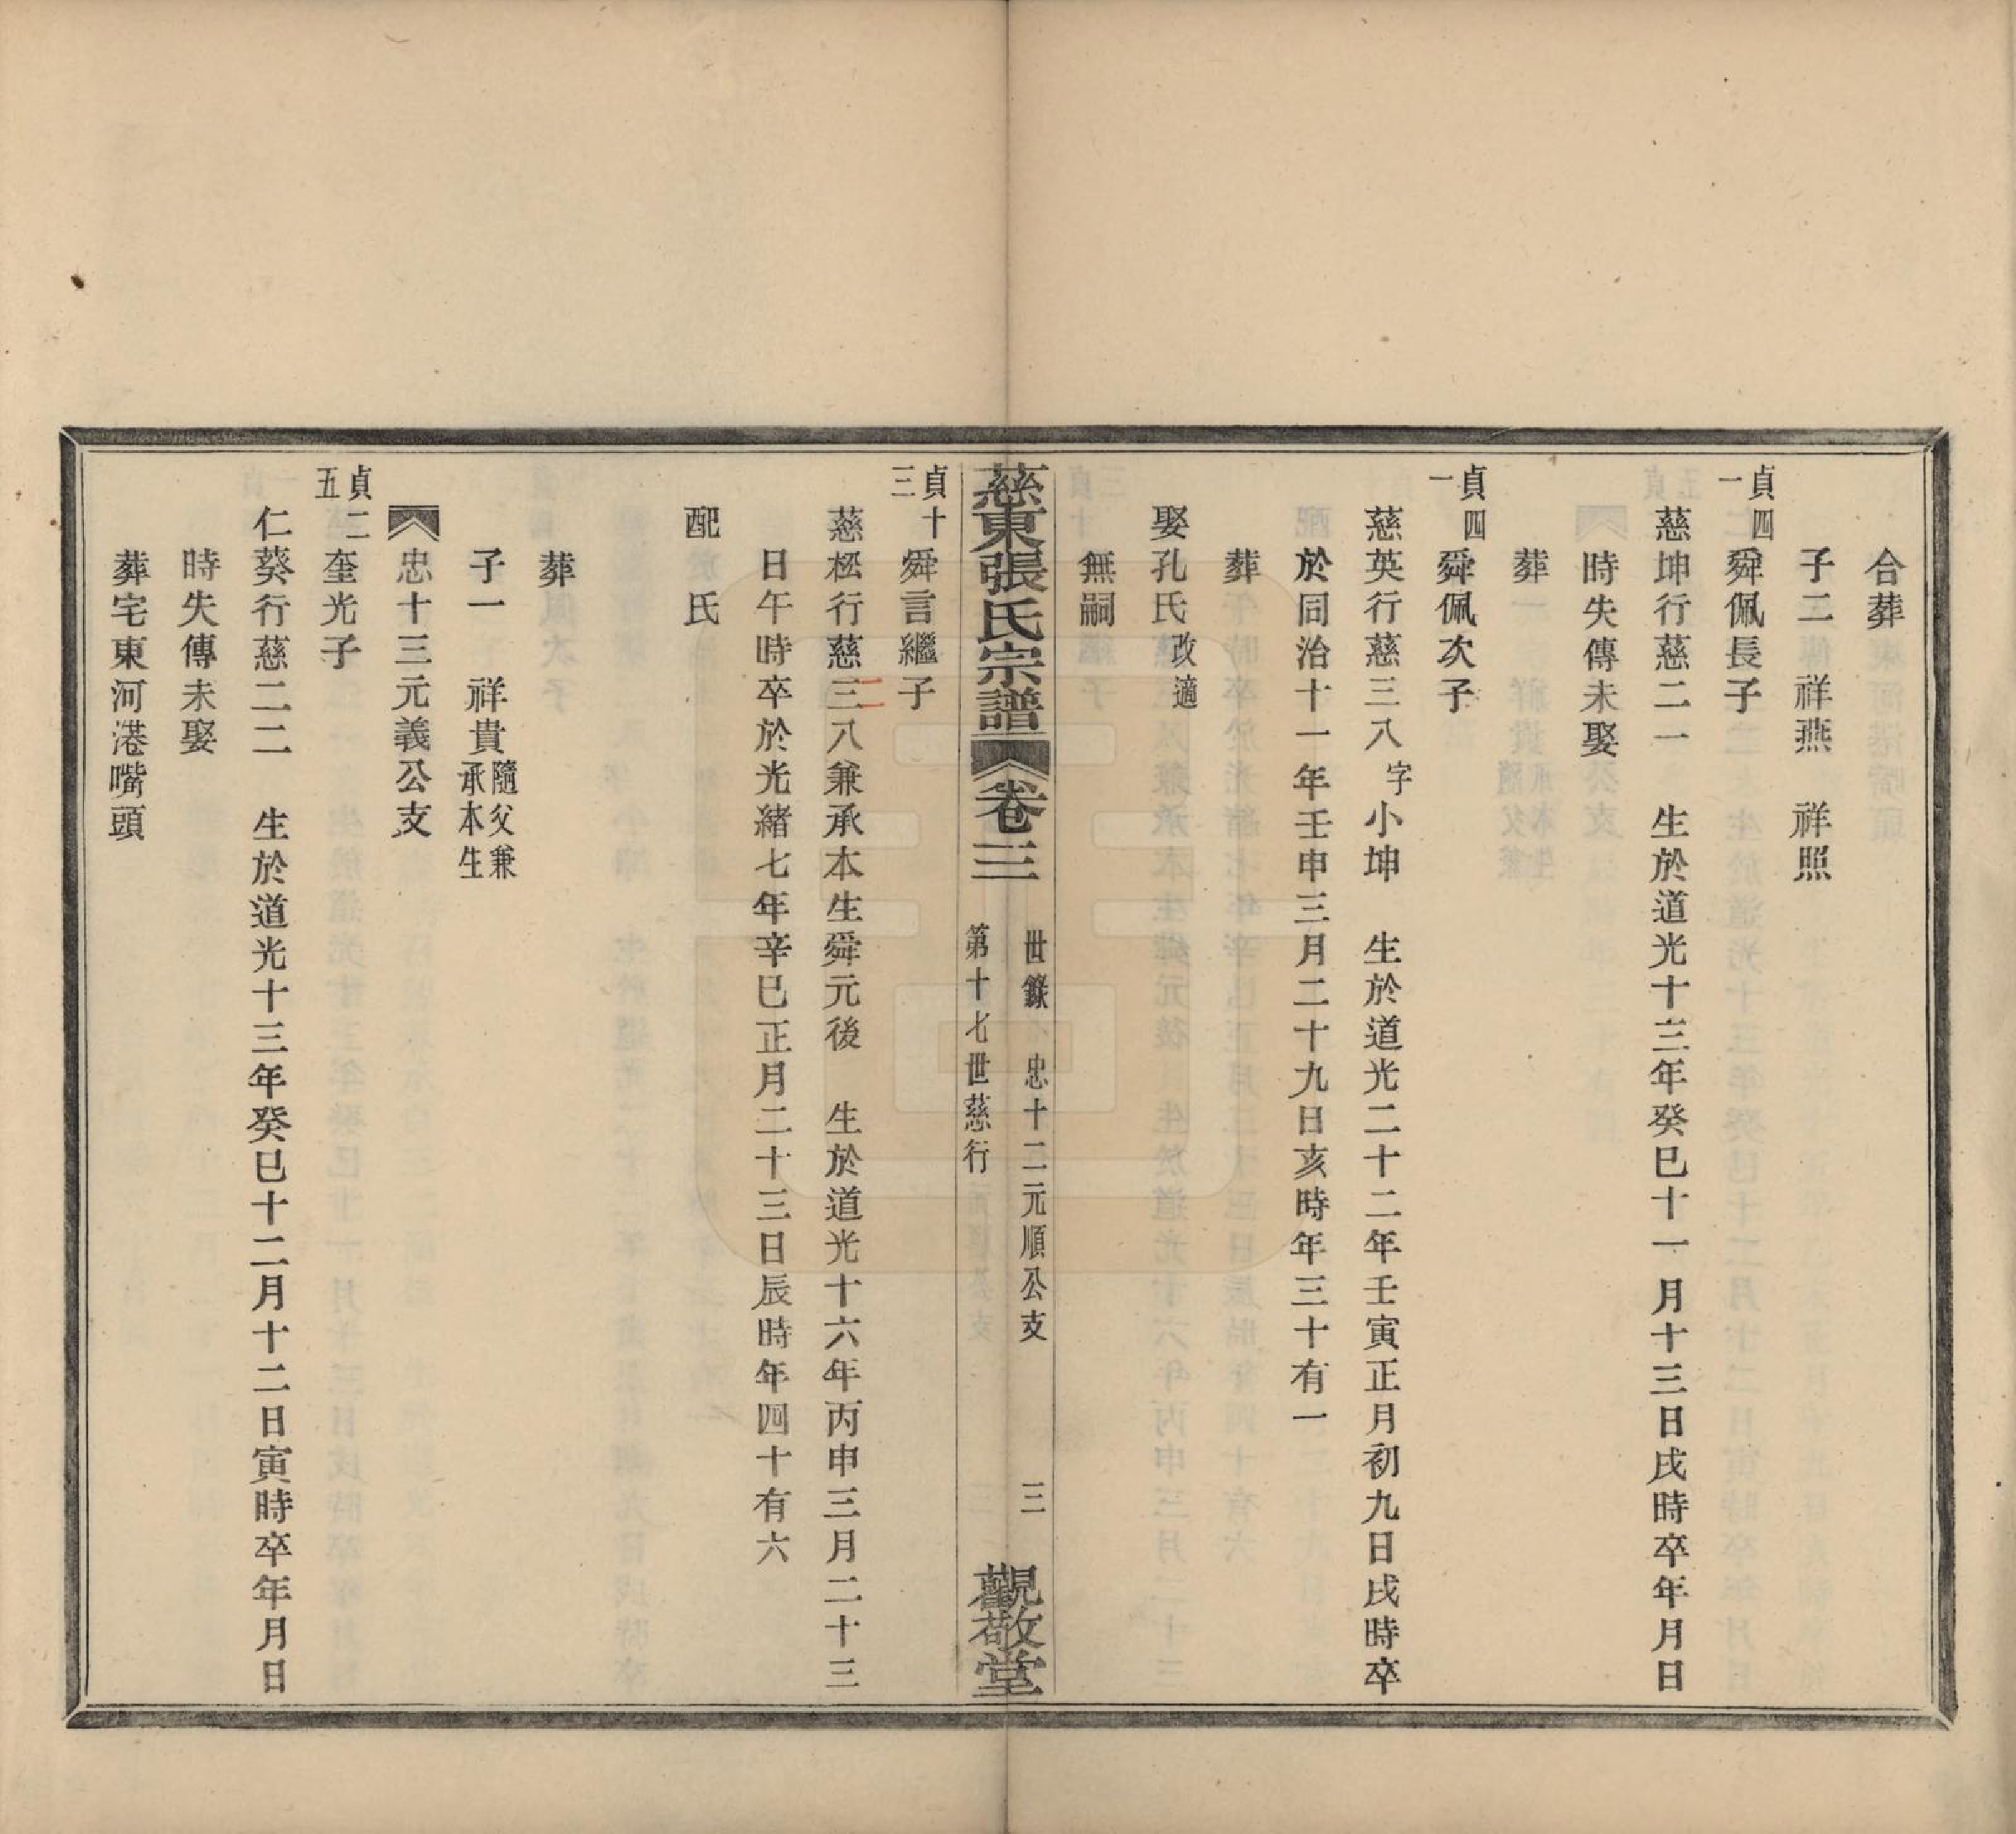 合葬
子二　祥燕　祥照
貞四一　舜佩長子
慈坤行慈二一　生於道光十三年癸巳十一月十三日戌時卒年月日
時失傳未娶
葬
貞四一　舜佩次子
慈英行慈三八字小坤　生於道光二十二年壬寅正月初九日戌時卒
於同治十一年壬申三月二十九日亥時年三十有一
葬
娶孔氏改適
無嗣
慈東張氏宗譜　卷三　世錄　忠十二元順公支　第十七世慈行　三　觀敬堂
貞十三　舜言繼子
慈松行慈三八兼承本生舜元後　生於道光十六年丙申三月二十三
日午時卒於光緒七年辛巳正月二十三日辰時年四十有六
配氏
葬
子一　祥貴隨父兼承本生
忠十三元義公支
貞二五　奎光子
仁葵行慈二二　生於道光十三年癸巳十二月十二日寅時卒年月日
時失傳未娶
葬宅東河港嘴頭